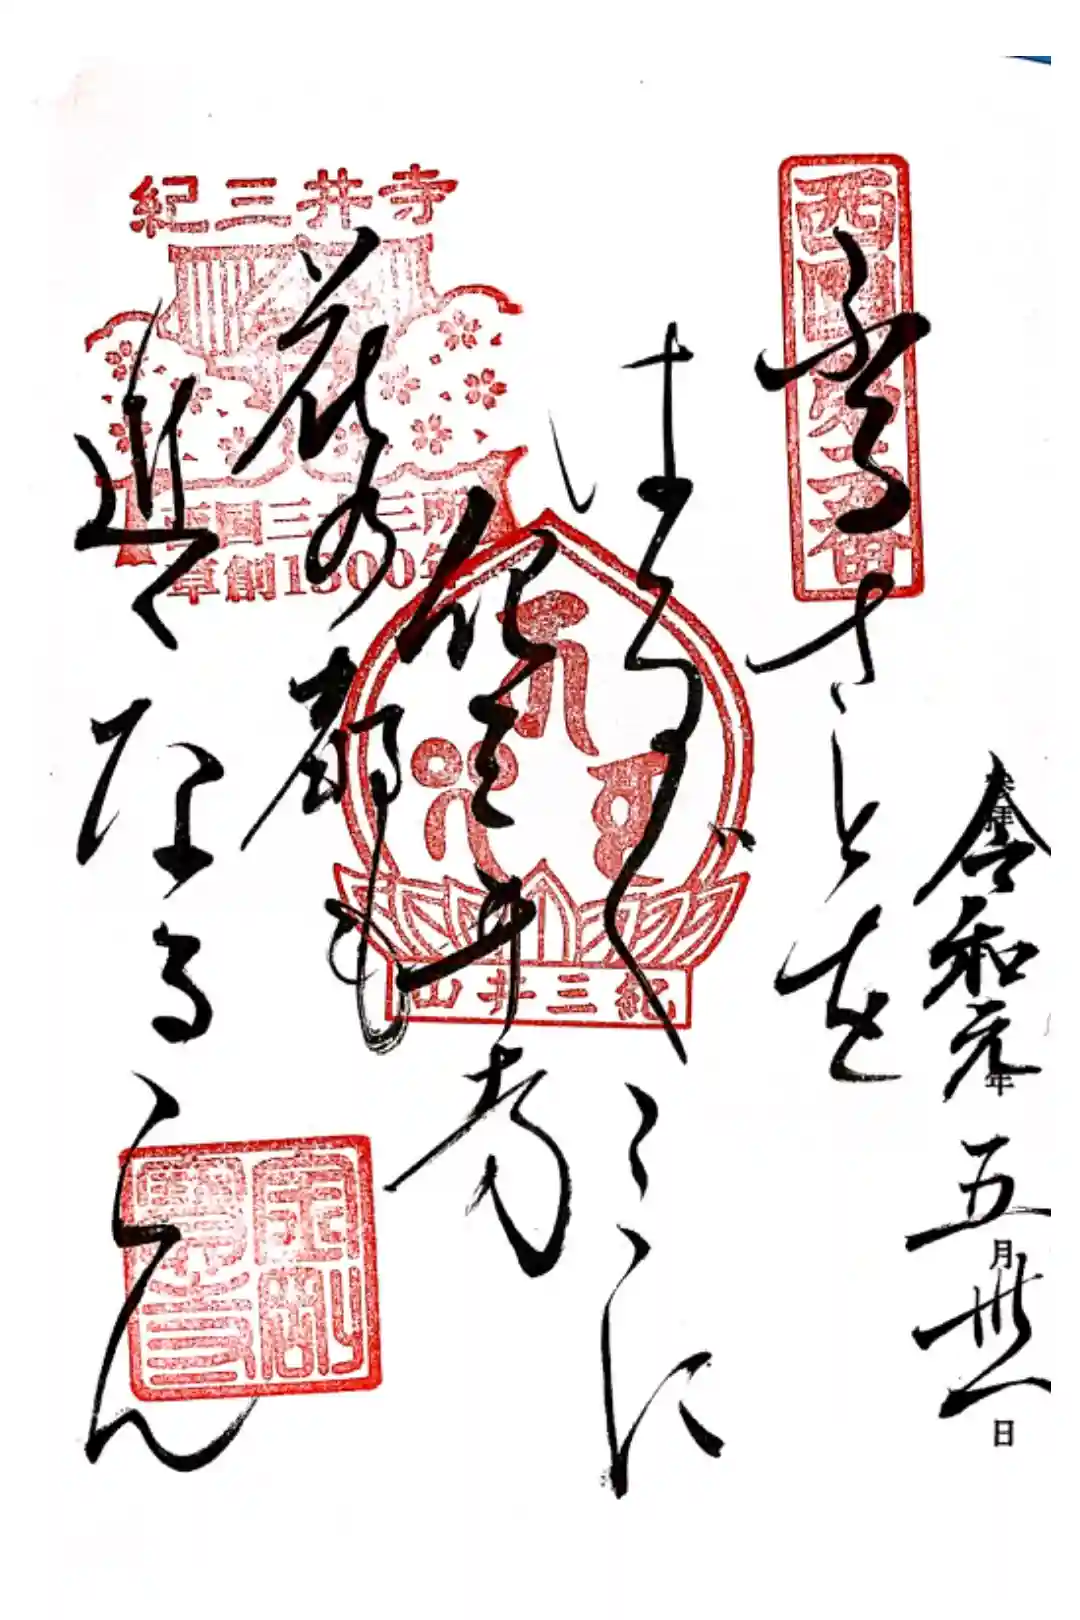 奉拝
令和元年五月卅一日
西国第二番
ふるさとを
はる〴〵こゝに
紀三井寺
花の都も
近くなるらん
紀三井寺
西国三十三所
草創1300年
紀三井山
金剛寶寺